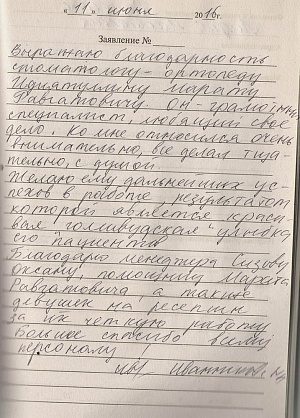 « 11 » июня 2016 г.
Заявление №
Выражаю благодарность
стоматологу - ортопеду
Идиятуллину Марату
Равгатовичу. Он - грамотный
специалист, любящий свое
дело. Ко мне относился очень
внимательно, все делал тща-
тельно, с душой.
Желаю ему дальнейших ус-
пехов в работе, результатом
которой является краси-
вая "голливудская" улыбка
его пациентов.
Благодарю менеджера Сизову
Оксану, помощницу Марата
Равгатовича, а также
девушек на ресепшн
за их четкую работу.
Большое спасибо всему
персоналу!